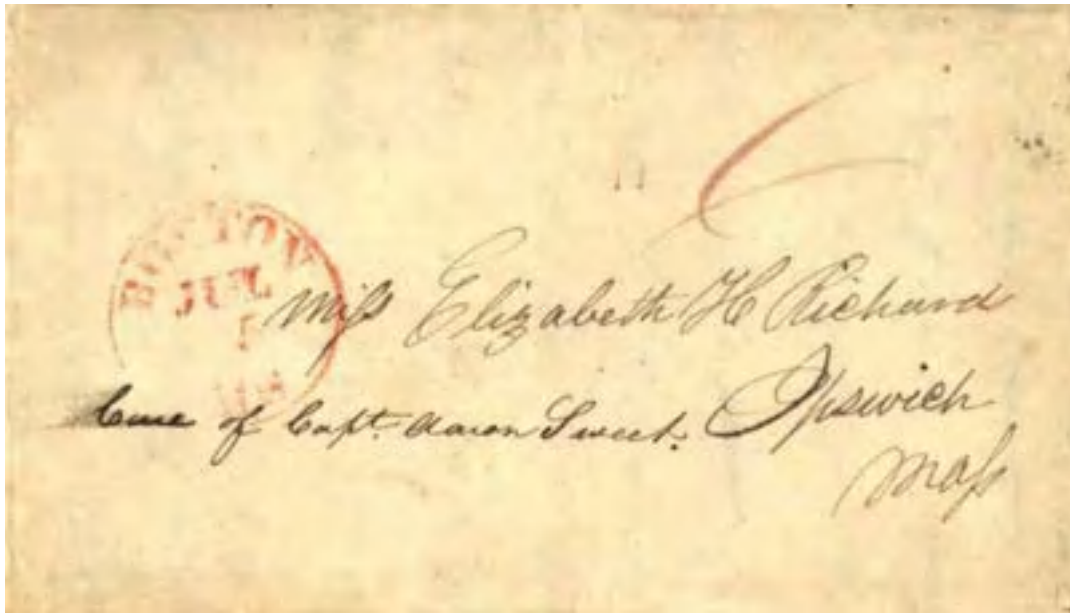 BOSTON
JUL
Miss Elizabeth H Richard
Care of Capt. Aaron Sweet. Ipswich
Mass